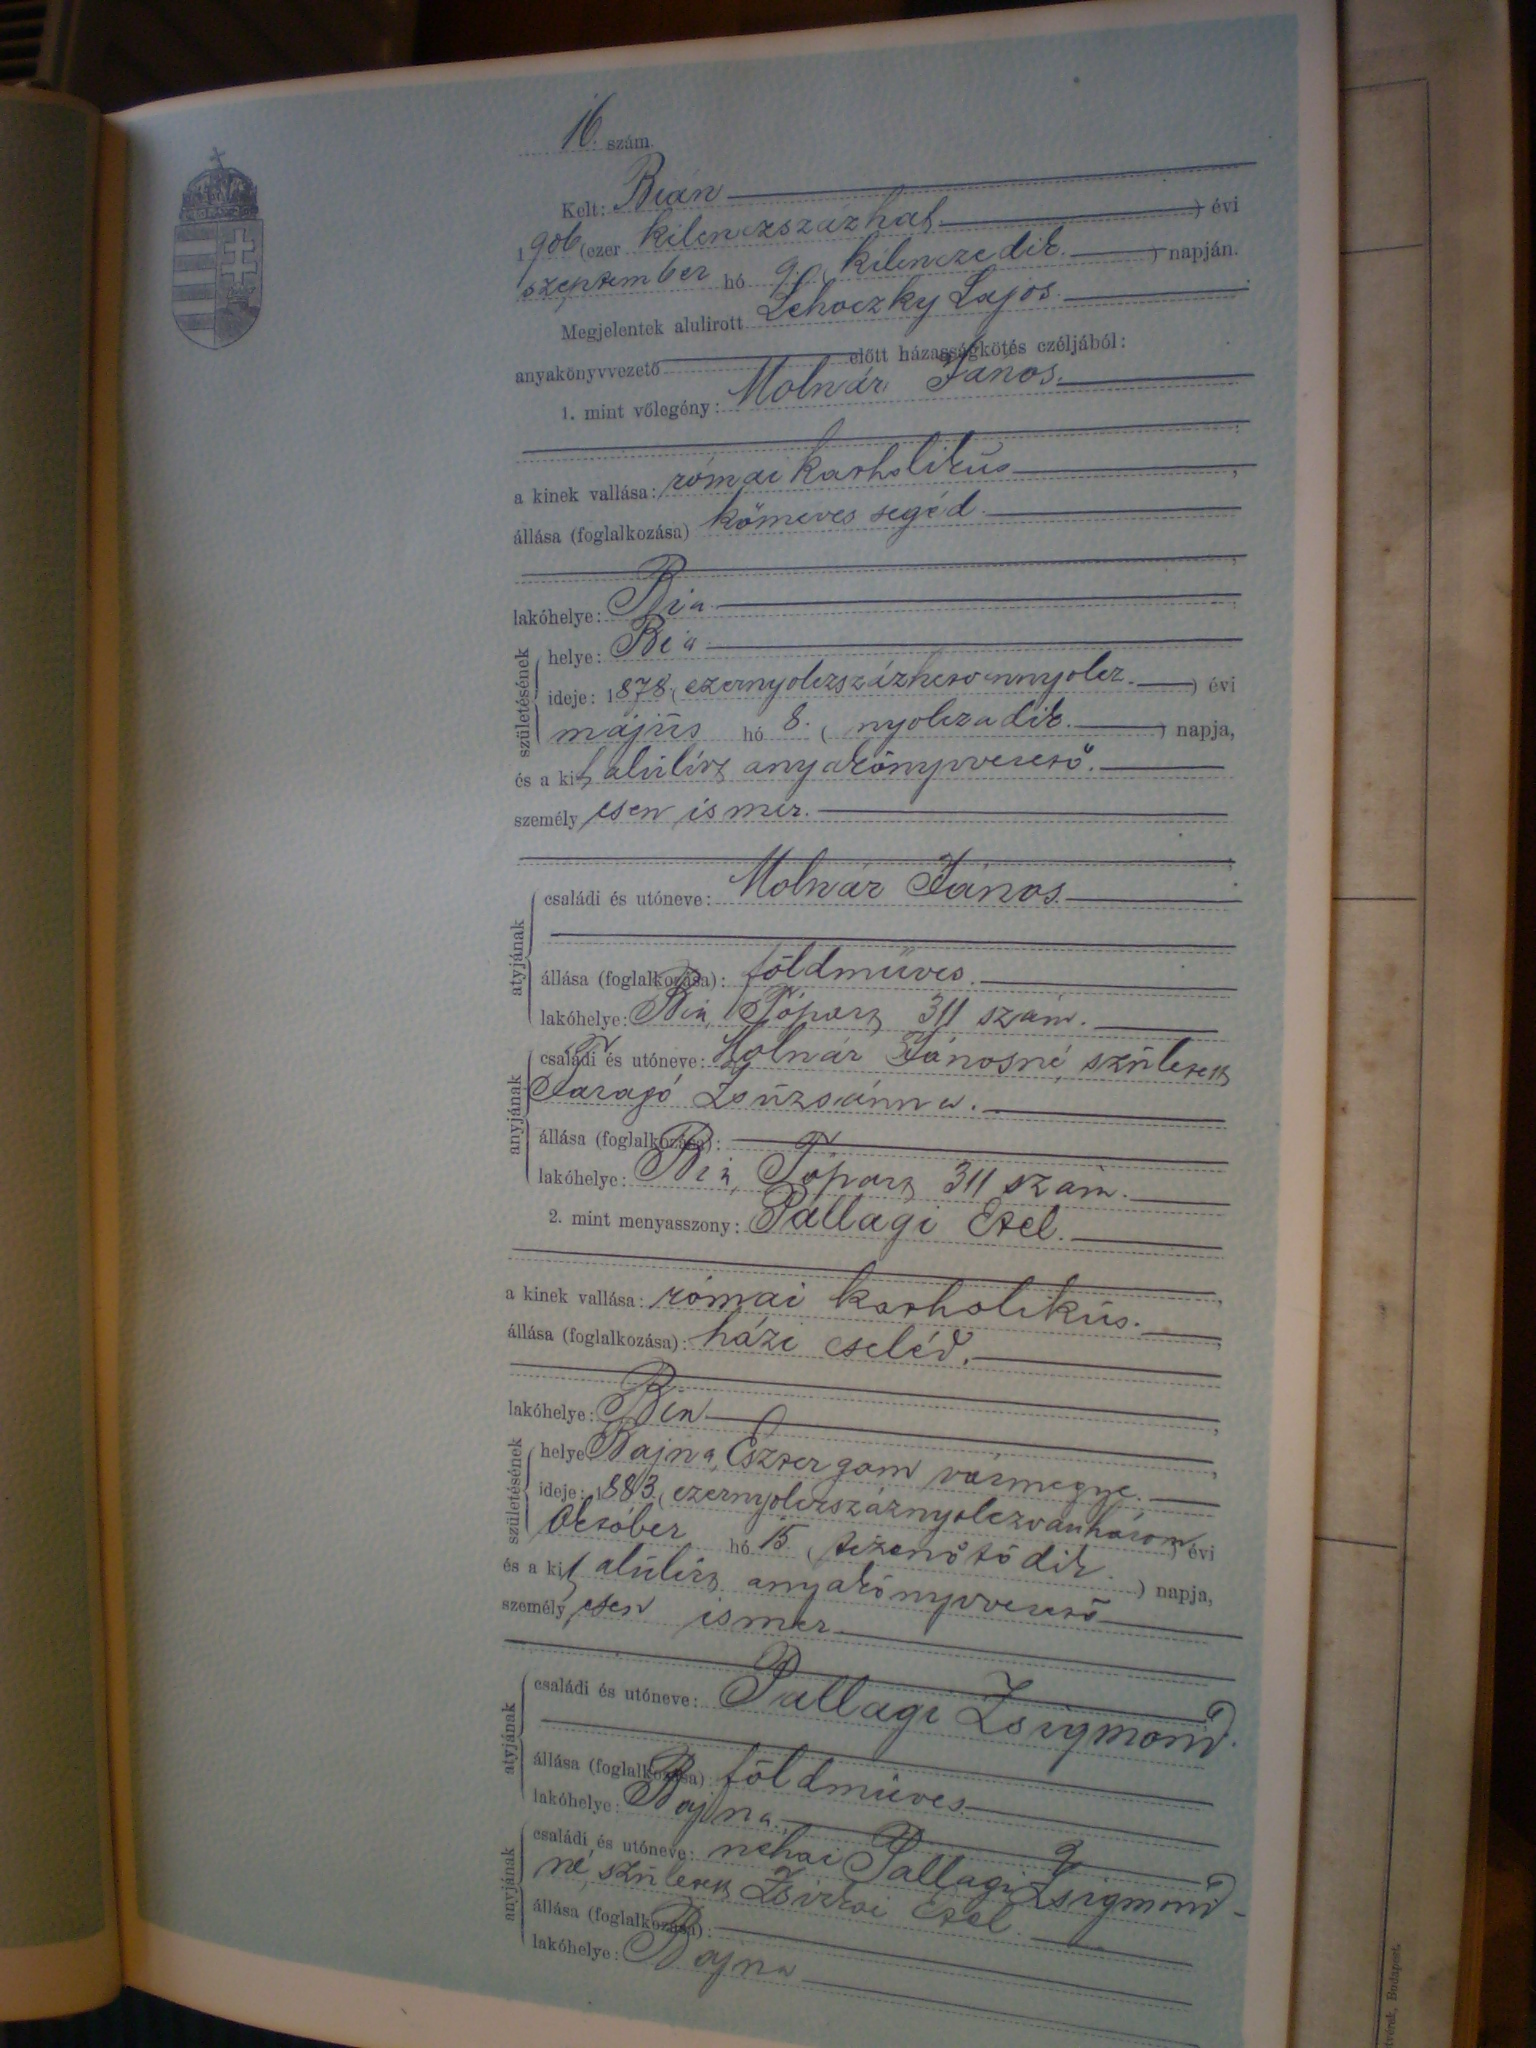 16. szám.
Kelt: Bián
1906 (ezer kilenczszázhat ) évi
szeptember hó 9 ( kilenczedik. ) napján.
Megjelentek alulirott Lehoczky Lajos.
anyakönyvvezető előtt házasságkötés czéljából:
1. mint vőlegény: Molnár János.
a kinek vallása: római katholikus
állása (foglalkozása) kőmeves segéd.
lakóhelye: Bia
születésének
helye: Bia
ideje: 1878. ( ezernyolczszázhetvennyolcz. ) évi
május hó 8. ( nyolczadik. ) napja,
és a kit alulírt anyakönyvvezető.
személyesen ismer.
atyjának
családi és utóneve: Molnár János.
állása (foglalkozása): földmüves.
lakóhelye: Bia, Tópart 311 szám.
anyjának
családi és utóneve: Molnár Jánosné, született
Faragó Zsuzsánna.
állása (foglalkozása):
lakóhelye: Bia, Tópart 311 szám.
2. mint menyasszony: Pallagi Etel.
a kinek vallása: római katholikus.
állása (foglalkozása): házi cseléd.
lakóhelye: Bia
születésének
helye Bajna, Esztergom vármegye.
ideje: 1883. ( ezernyolczszáznyolczvanhárom ) évi
Október hó 15 ( tizenötödik. ) napja,
és a kit alulírt anyakönyvvezető
személyesen ismer
atyjának
családi és utóneve: Pallagi Zsigmond.
állása (foglalkozása) földmüves
lakóhelye: Bajna.
anyjának
családi és utóneve: néhai Pallagi Zsigmond-
né, született Etel.
állása (foglalkozása):
lakóhelye: Bajna
Budapest.